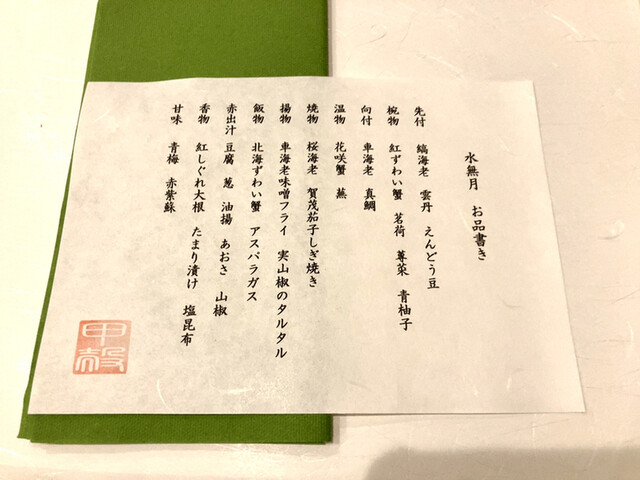 水無月　お品書き
先付　縞海老　雲丹　えんどう豆
椀物　紅ずわい蟹　茗荷　蓴菜　青柚子
向付　車海老　真鯛
温物　花咲蟹　蕪
焼物　桜海老　賀茂茄子しぎ焼き
揚物　車海老味噌フライ　実山椒のタルタル
飯物　北海ずわい蟹　アスパラガス
赤出汁　豆腐　葱　油揚　あおさ　山椒
香物　紅しぐれ大根　たまり漬け　塩昆布
甘味　青梅　赤紫蘇
甲殻